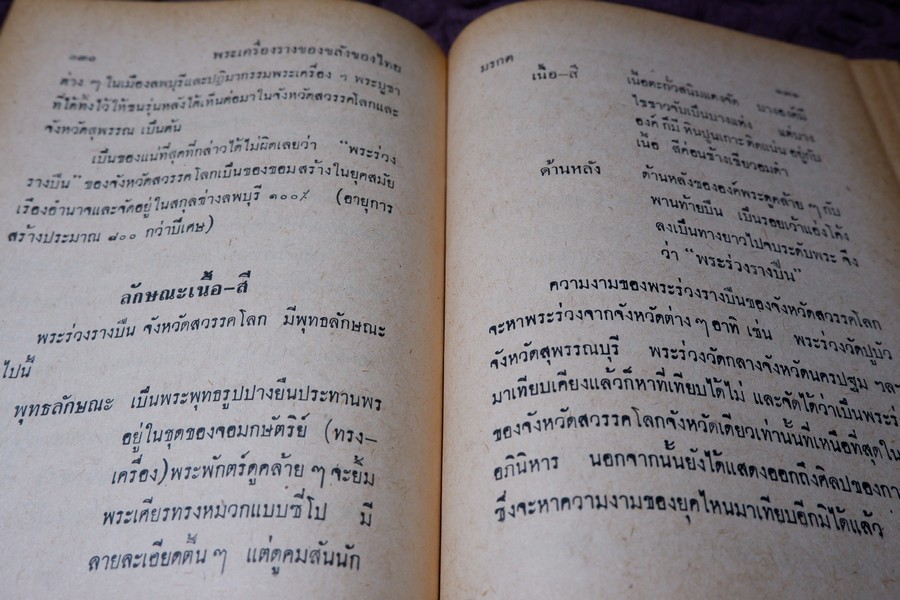 ๑๓๑ พระเครื่องรางของขลังของไทย
ต่าง ๆ ในเมืองลพบุรีและปฏิมากรรมพระเครื่อง ๆ พระบูชา
ที่ได้ทิ้งไว้ให้ชนรุ่นหลังได้เห็นต่อมาในจังหวัดสวรรคโลกและ
จังหวัดสุพรรณ เป็นต้น
เป็นของแน่ที่สุดที่กล่าวได้ไม่ผิดเลยว่า "พระร่วง
รางปืน" ของจังหวัดสวรรคโลกเป็นของขอมสร้างในยุคสมัย
เรืองอำนาจและจัดอยู่ในสกุลช่างลพบุรี ๑๐๐% (อายุการ
สร้างประมาณ ๘๐๐ กว่าปีเศษ)
ลักษณะเนื้อ-สี
พระร่วงรางปืน จังหวัดสวรรคโลก มีพุทธลักษณะ
ไปนี้
พุทธลักษณะ เป็นพระพุทธรูปปางยืนประทานพร
อยู่ในชุดของจอมกษัตริย์ (ทรง-
เครื่อง) พระพักตร์ดูคล้าย ๆ จะยิ้ม
พระเศียรทรงหมวกแบบชีโป มี
ลายละเอียดตื้น ๆ แต่ดูคมสันนัก
มรกต
เนื้อ-สี เนื้อตะกั่วสนิมแดงจัด บางองค์มี
ไขขาวจับเป็นบางแห่ง แต่บาง
องค์ ก็มี หินปูนเกาะติดแน่น อยู่กับ
เนื้อ สีค่อนข้างเขียวอมดำ
ด้านหลัง ด้านหลังขององค์พระดูคล้าย ๆ กับ
พานท้ายปืน เป็นรอยเว้าแอ่งโค้ง
ลงเป็นทางยาวไปจนระดับพระ จึง
ว่า "พระร่วงรางปืน"
ความงามของพระร่วงรางปืนของจังหวัดสวรรคโลก
จะหาพระร่วงจากจังหวัดต่าง ๆ อาทิ เช่น พระร่วงวัดปู่บัว
จังหวัดสุพรรณบุรี พระร่วงวัดกลางจังหวัดนครปฐม ๆล
มาเทียบเคียงแล้วก็หาที่เทียบได้ไม่ และจัดได้ว่าเป็นพระร่
ของจังหวัดสวรรคโลกจังหวัดเดียวเท่านั้นที่เหนือที่สุดใน
อภินิหาร นอกจากนั้นยังได้แสดงออกถึงศิลปของกา
ซึ่งจะหาความงามของยุคไหนมาเทียบอีกมิได้แล้ว